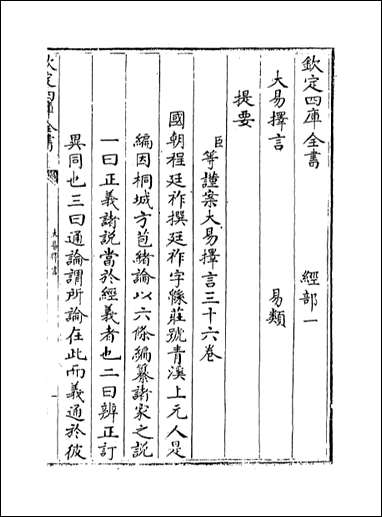 欽定四庫全書　經部一
大易擇言　易類
提要
臣等謹案大易擇言三十六卷
國朝程廷祚撰廷祚字緜莊號青溪上元人是
編因桐城方苞緒論以六條編纂諸家之説
一曰正義諸説當於經義者也二曰辨正訂
異同也三曰通論謂所論在此而義通於彼
欽定四庫全書
大易擇言
一